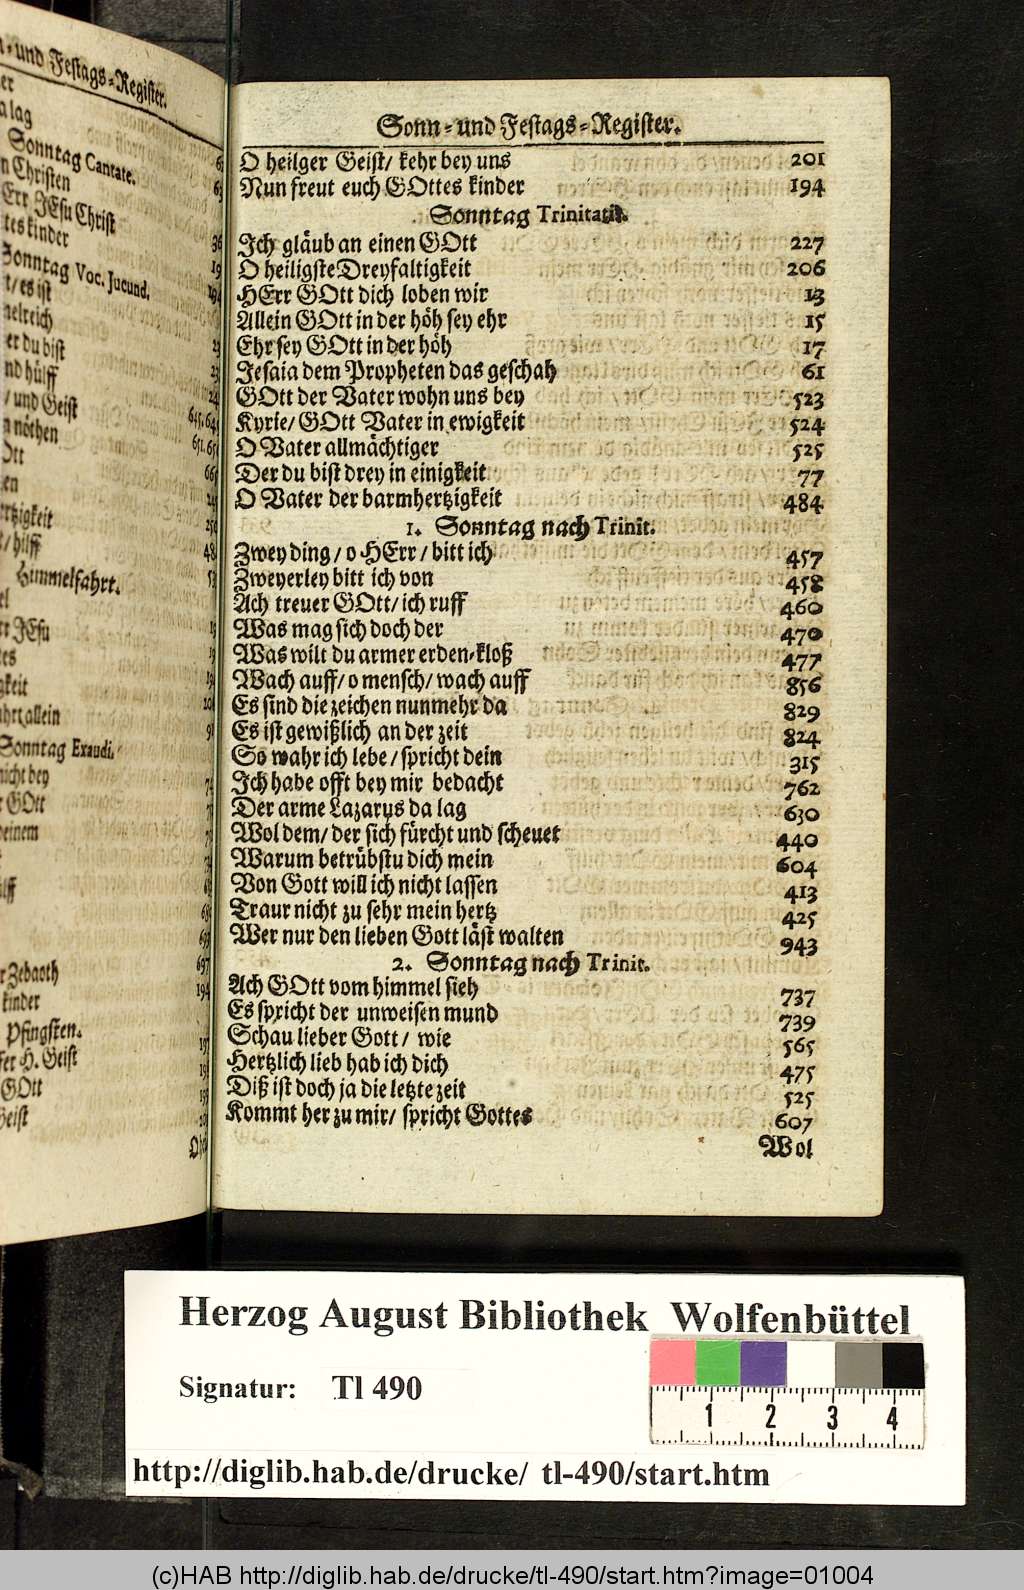 n- und Festags-Register.
er
a lag
Sonntag Cantate.
n Christen
Err JEsu Christ
tes kinder 36
Sonntag Voc. Jucund. 19
t/ es ist 194
melreich
er du bist 23
nd hülff 23
/ und Geist 24
n nöthen 645. 645
Ott 651. 651
en
ertzigkeit
/ hilff
Himmelfahrt.
rr JEsu
tes
gkeit
ahrt allein
Sonntag Exaudi.
nicht bey
GOtt
einem
ülff
r Zebaoth 697
kinder 194
Pfingsten.
H. Geist
GOtt
Geist
Sonn- und Festags-Register.
O heilger Geist/ kehr bey uns 201
Nun freut euch GOttes kinder 194
Sonntag Trinitatis.
Ich gläub an einen GOtt 227
O heiligste Dreyfaltigkeit 206
HErr GOtt dich loben wir 13
Allein GOtt in der höh sey ehr 15
Ehr sey GOtt in der höh 17
Jesaia dem Propheten das geschah 61
GOtt der Vater wohn uns bey 523
Kyrie/ GOtt Vater in ewigkeit 524
O Vater allmächtiger 525
Der du bist drey in einigkeit 77
O Vater der barmhertzigkeit 484
1. Sonntag nach Trinit.
Zwey ding/ o HErr/ bitt ich 457
Zweyerley bitt ich von 458
Ach treuer GOtt/ ich ruff 460
Was mag sich doch der 470
Was wilt du armer erden-kloß 477
Wach auff/ o mensch/ wach auff 856
Es sind die zeichen nunmehr da 829
Es ist gewißlich an der zeit 824
So wahr ich lebe/ spricht dein 315
Ich habe offt bey mir bedacht 762
Der arme Lazarus da lag 630
Wol dem/ der sich fürcht und scheuet 440
Warum betrübstu dich mein 604
Von Gott will ich nicht lassen 413
Traur nicht zu sehr mein hertz 425
Wer nur den lieben Gott läst walten 943
2. Sonntag nach Trinit.
Ach GOtt vom himmel sieh 737
Es spricht der unweisen mund 739
Schau lieber Gott/ wie 565
Hertzlich lieb hab ich dich 475
Diß ist doch ja die letzte zeit 525
Kommt her zu mir/ spricht Gottes 607
Wol
Herzog August Bibliothek Wolfenbüttel
Signatur: Tl 490
1 2 3 4
http://diglib.hab.de/drucke/ tl-490/start.htm
(c)HAB http://diglib.hab.de/drucke/tl-490/start.htm?image=01004